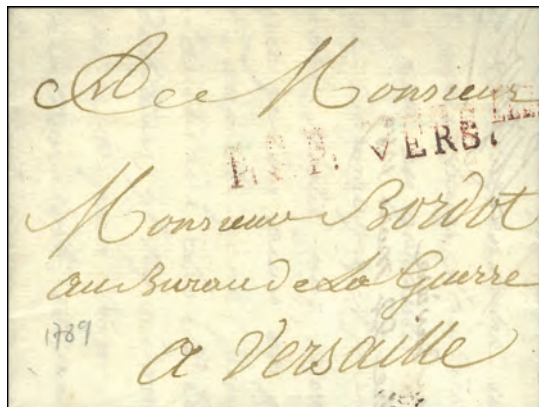 A Monsieur
P.S.P. VERS.
Monsieur Bordot
au Bureau de La Guerre
1789
a Versaille